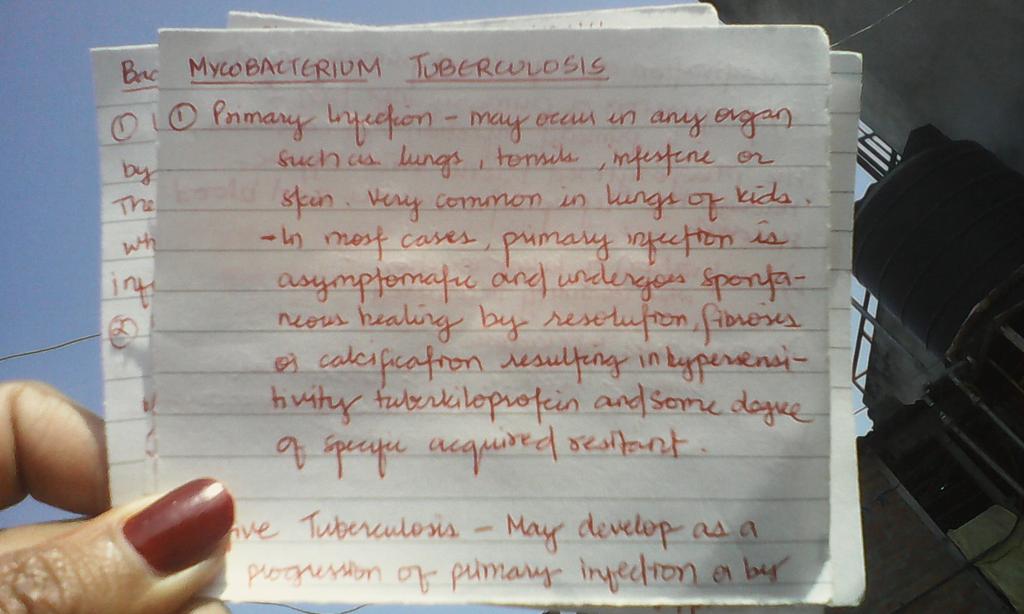 MYCOBACTERIUM TUBERCULOSIS
① Primary Infection - may occur in any organ
such as lungs, tonsils, intestine or
skin. Very common in lungs of kids.
- In most cases, primary infection is
asymptomatic and undergoes sponta-
neous healing by resolution, fibrosis
or calcification resulting in hypersensi-
tivity tuberkiloprotein and some degree
of specific acquired resitant.
ive Tuberculosis - May develop as a
progression of primary infection or by
Bac
①
by
The
wh
inf
②